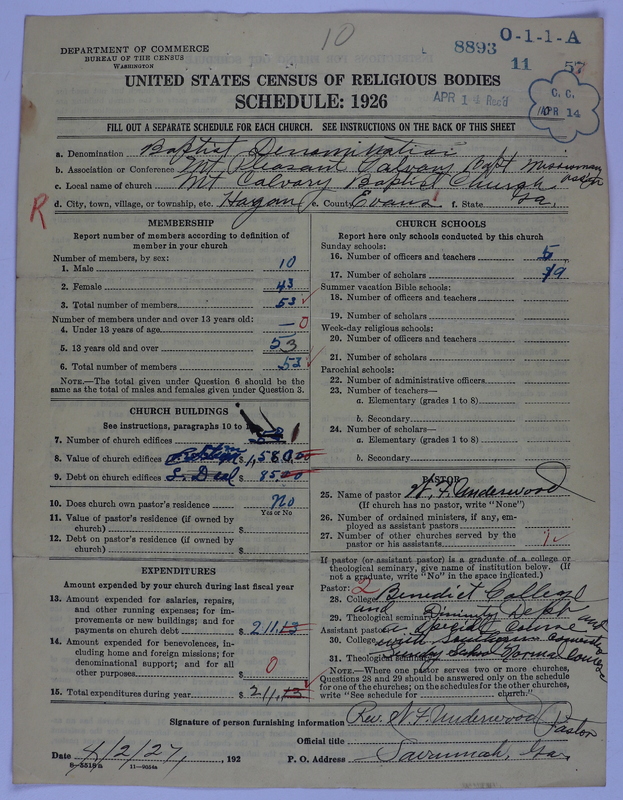 10
DEPARTMENT OF COMMERCE
BUREAU OF THE CENSUS
WASHINGTON
8893 0-1-1-A
11 57
APR 14 Rec'd
C. C.
APR 14
UNITED STATES CENSUS OF RELIGIOUS BODIES
SCHEDULE: 1926
FILL OUT A SEPARATE SCHEDULE FOR EACH CHURCH. SEE INSTRUCTIONS ON THE BACK OF THIS SHEET
a. Denomination Baptist Denomination
b. Association or Conference Mt Pleasant Calvary Bapt Missionary Assn
c. Local name of church Mt Calvary Baptist Church
d. City, town, village, or township, etc. Hagan e. County Evans f. State Ga.
R
MEMBERSHIP
Report number of members according to definition of
member in your church
Number of members, by sex:
1. Male 10
2. Female 43
3. Total number of members 53
Number of members under and over 13 years old:
4. Under 13 years of age — 0
5. 13 years old and over 53
6. Total number of members 53
NOTE.—The total given under Question 6 should be the
same as the total of males and females given under Question 3.
CHURCH BUILDINGS
See instructions, paragraphs 10 to
7. Number of church edifices 1
8. Value of church edifices $
9. Debt on church edifices $ 85.00
10. Does church own pastor's residence No
Yes or No
11. Value of pastor's residence (if owned by
church) $
12. Debt on pastor's residence (if owned by
church) $
EXPENDITURES
Amount expended by your church during last fiscal year
13. Amount expended for salaries, repairs,
and other running expenses; for im-
provements or new buildings; and for
payments on church debt $ 211.13
14. Amount expended for benevolences, in-
cluding home and foreign missions; for
denominational support; and for all
other purposes $ 0
15. Total expenditures during year $ 211.13
CHURCH SCHOOLS
Report here only schools conducted by this church
Sunday schools:
16. Number of officers and teachers 5
17. Number of scholars 19
Summer vacation Bible schools:
18. Number of officers and teachers
19. Number of scholars
Week-day religious schools:
20. Number of officers and teachers
21. Number of scholars
Parochial schools:
22. Number of administrative officers
23. Number of teachers—
a. Elementary (grades 1 to 8)
b. Secondary
24. Number of scholars—
a. Elementary (grades 1 to 8)
b. Secondary
PASTOR
25. Name of pastor W. F. Underwood
(If church has no pastor, write "None")
26. Number of ordained ministers, if any, em-
ployed as assistant pastors
27. Number of other churches served by the
pastor or his assistants
If pastor (or assistant pastor) is a graduate of a college or
theological seminary, give name of institution below. (If
not a graduate, write "No" in the space indicated.)
Pastor: 2
28. College Benedict College
29. Theological seminary and Divinity Dept and
Assistant pastor: a Special Course
30. College with Southern
31. Theological seminary Sunday School Normal College
NOTE.—Where one pastor serves two or more churches,
Questions 28 and 29 should be answered only on the schedule
for one of the churches; on the schedules for the other churches,
write "See schedule for church."
Signature of person furnishing information Rev. W. F. Underwood
Official title Pastor
Date 4/2/27, 192 P. O. Address Savannah, Ga.
8—5518a 11—9054a